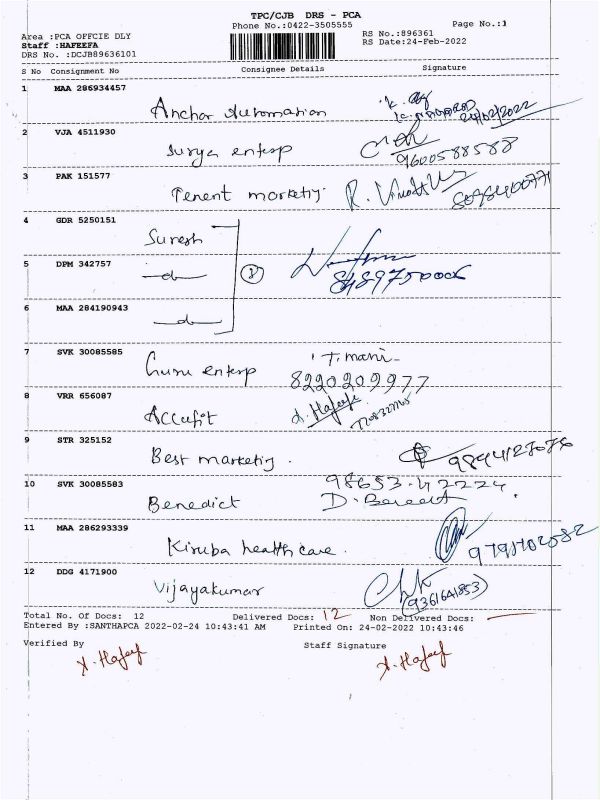 TPC/CJB DRS - PCA
Phone No.:0422-3505555 Page No.:1
Area :PCA OFFCIE DLY RS No.:896361
Staff :HAFEEFA RS Date:24-Feb-2022
DRS No. :DCJB89636101
S No Consignment No Consignee Details Signature
1 MAA 286934457
Anchor Automation 24/02/2022
2 VJA 4511930
Surya entersp 9600588588
3 PAK 151577
Tenent marketig
4 GDR 5250151
Suresh
5 DPM 342757
-do- 3 8489750006
6 MAA 284190943
-do-
7 SVK 30085585
Guru entersp T. mani
8220209977
8 VRR 656087
Accufit A. Hafeefa
9 STR 325152
Best marketig.
10 SVK 30085583 98653-42224
Benedict D. Benedict
11 MAA 286293339
Kiruba health care. 9791702082
12 DDG 4171900
Vijayakumar (9361641853)
Total No. Of Docs: 12 Delivered Docs: 12 Non Delivered Docs: —
Entered By :SANTHAPCA 2022-02-24 10:43:41 AM Printed On: 24-02-2022 10:43:46
Verified By Staff Signature
A. Hafeef A. Hafeef